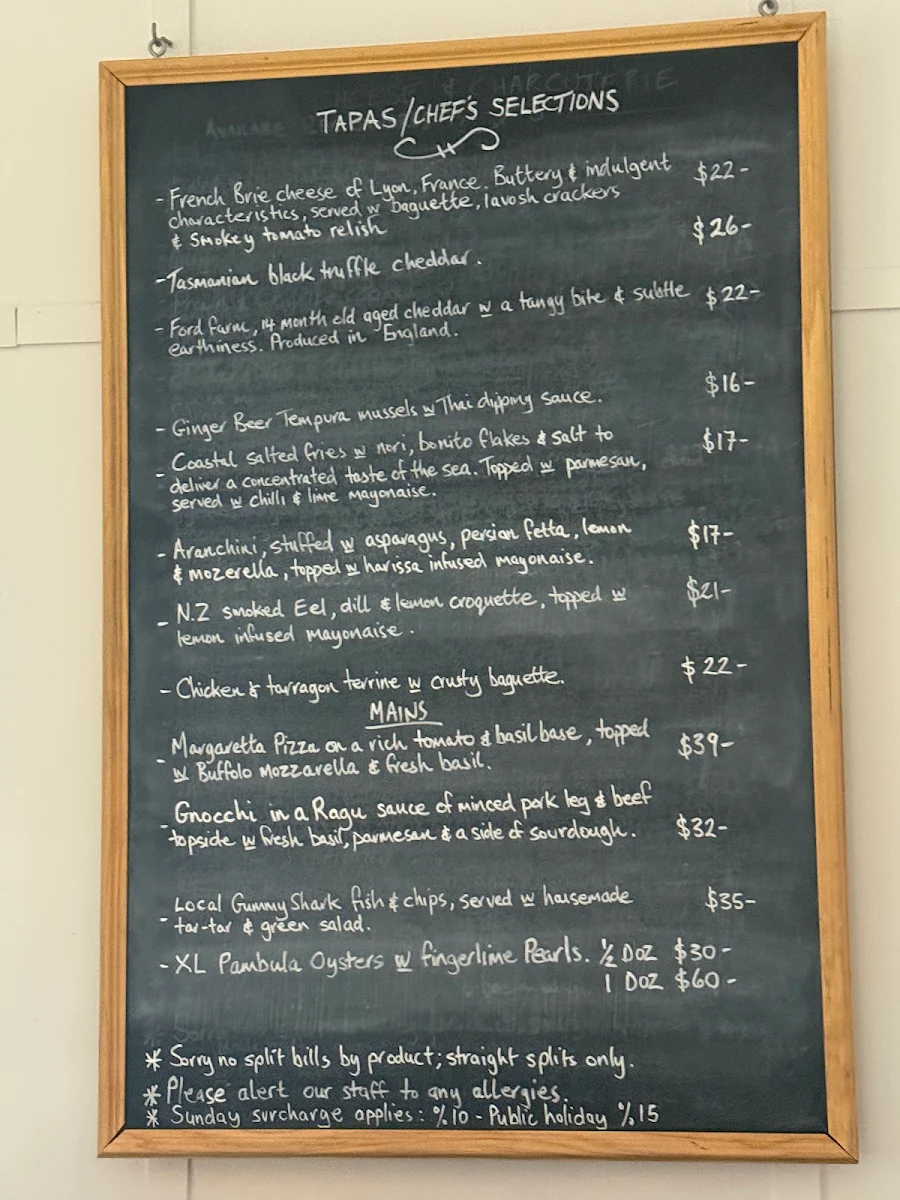 TAPAS/CHEF'S SELECTIONS
- French Brie cheese of Lyon, France. Buttery & indulgent $22-
characteristics, served w baguette, lavosh crackers
& Smokey tomato relish
$26-
- Tasmanian black truffle cheddar.
- Ford farm, 14 month old aged cheddar w a tangy bite & subtle $22-
earthiness. Produced in England.
$16-
- Ginger Beer Tempura mussels w Thai dipping sauce.
- Coastal salted fries w nori, bonito flakes & salt to $17-
deliver a concentrated taste of the sea. Topped w parmesan,
served w chilli & lime mayonaise.
- Aranchini, stuffed w asparagus, persian fetta, lemon $17-
& mozerella, topped w harissa infused mayonaise.
- N.Z smoked Eel, dill & lemon croquette, topped w $21-
lemon infused mayonaise.
- Chicken & tarragon terrine w crusty baguette. $22-
MAINS
- Margaretta Pizza on a rich tomato & basil base, topped $39-
w Buffolo Mozzarella & fresh basil.
- Gnocchi in a Ragu sauce of minced pork leg & beef
topside w fresh basil, parmesan & a side of sourdough. $32-
- Local Gummy Shark fish & chips, served w housemade $35-
tar-tar & green salad.
- XL Pambula Oysters w fingerlime Pearls. ½ DOZ $30-
1 DOZ $60-
* Sorry no split bills by product; straight splits only.
* Please alert our staff to any allergies.
* Sunday surcharge applies: %10 - Public holiday %15